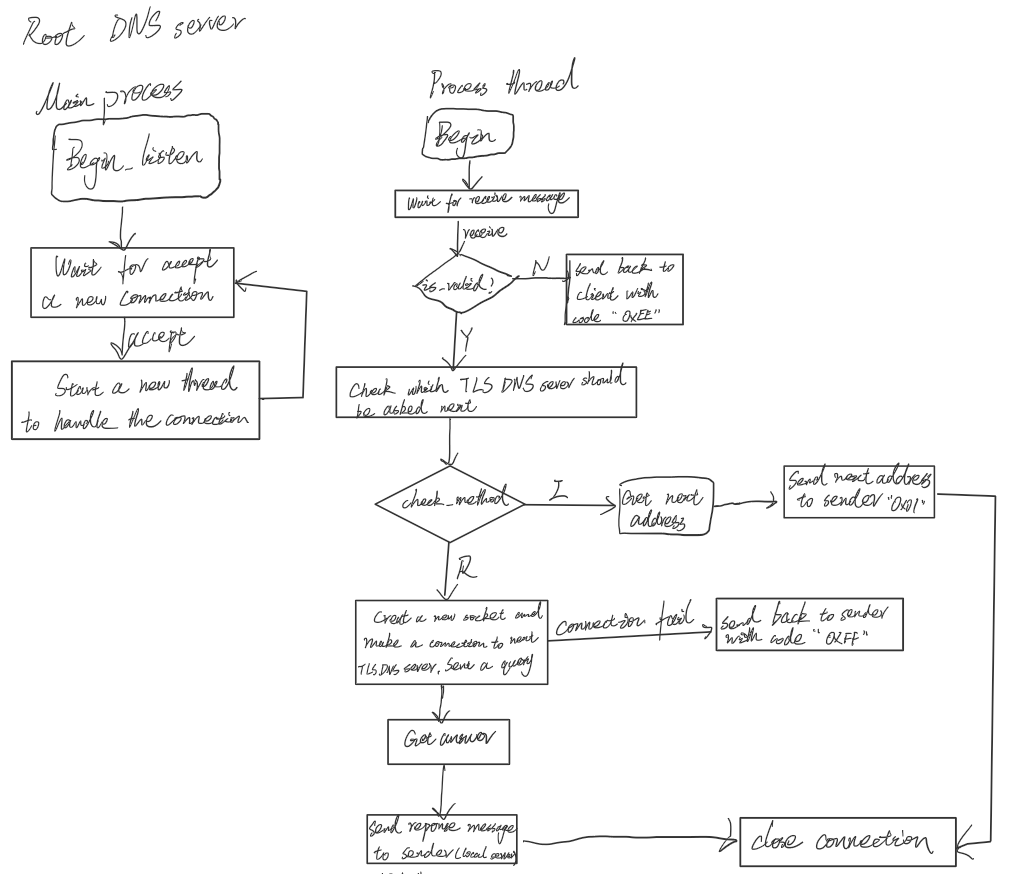 Root DNS server
Main process
Begin_listen
Wait for accept
a new connection
accept
Start a new thread
to handle the connection
Process thread
Begin
Wait for receive message
receive
is_valid?
N
send back to
client with
code "0XEE"
Y
Check which TLS DNS sever should
be asked next
check_method
I
Get next
address
Send next address
to sender "0x01"
R
Creat a new socket and
make a connection to next
TLS DNS sever. Sent a query
Connection fail
Send back to sender
with code "0XFF"
Get answer
Send reponse message
to sender (local server
close connection